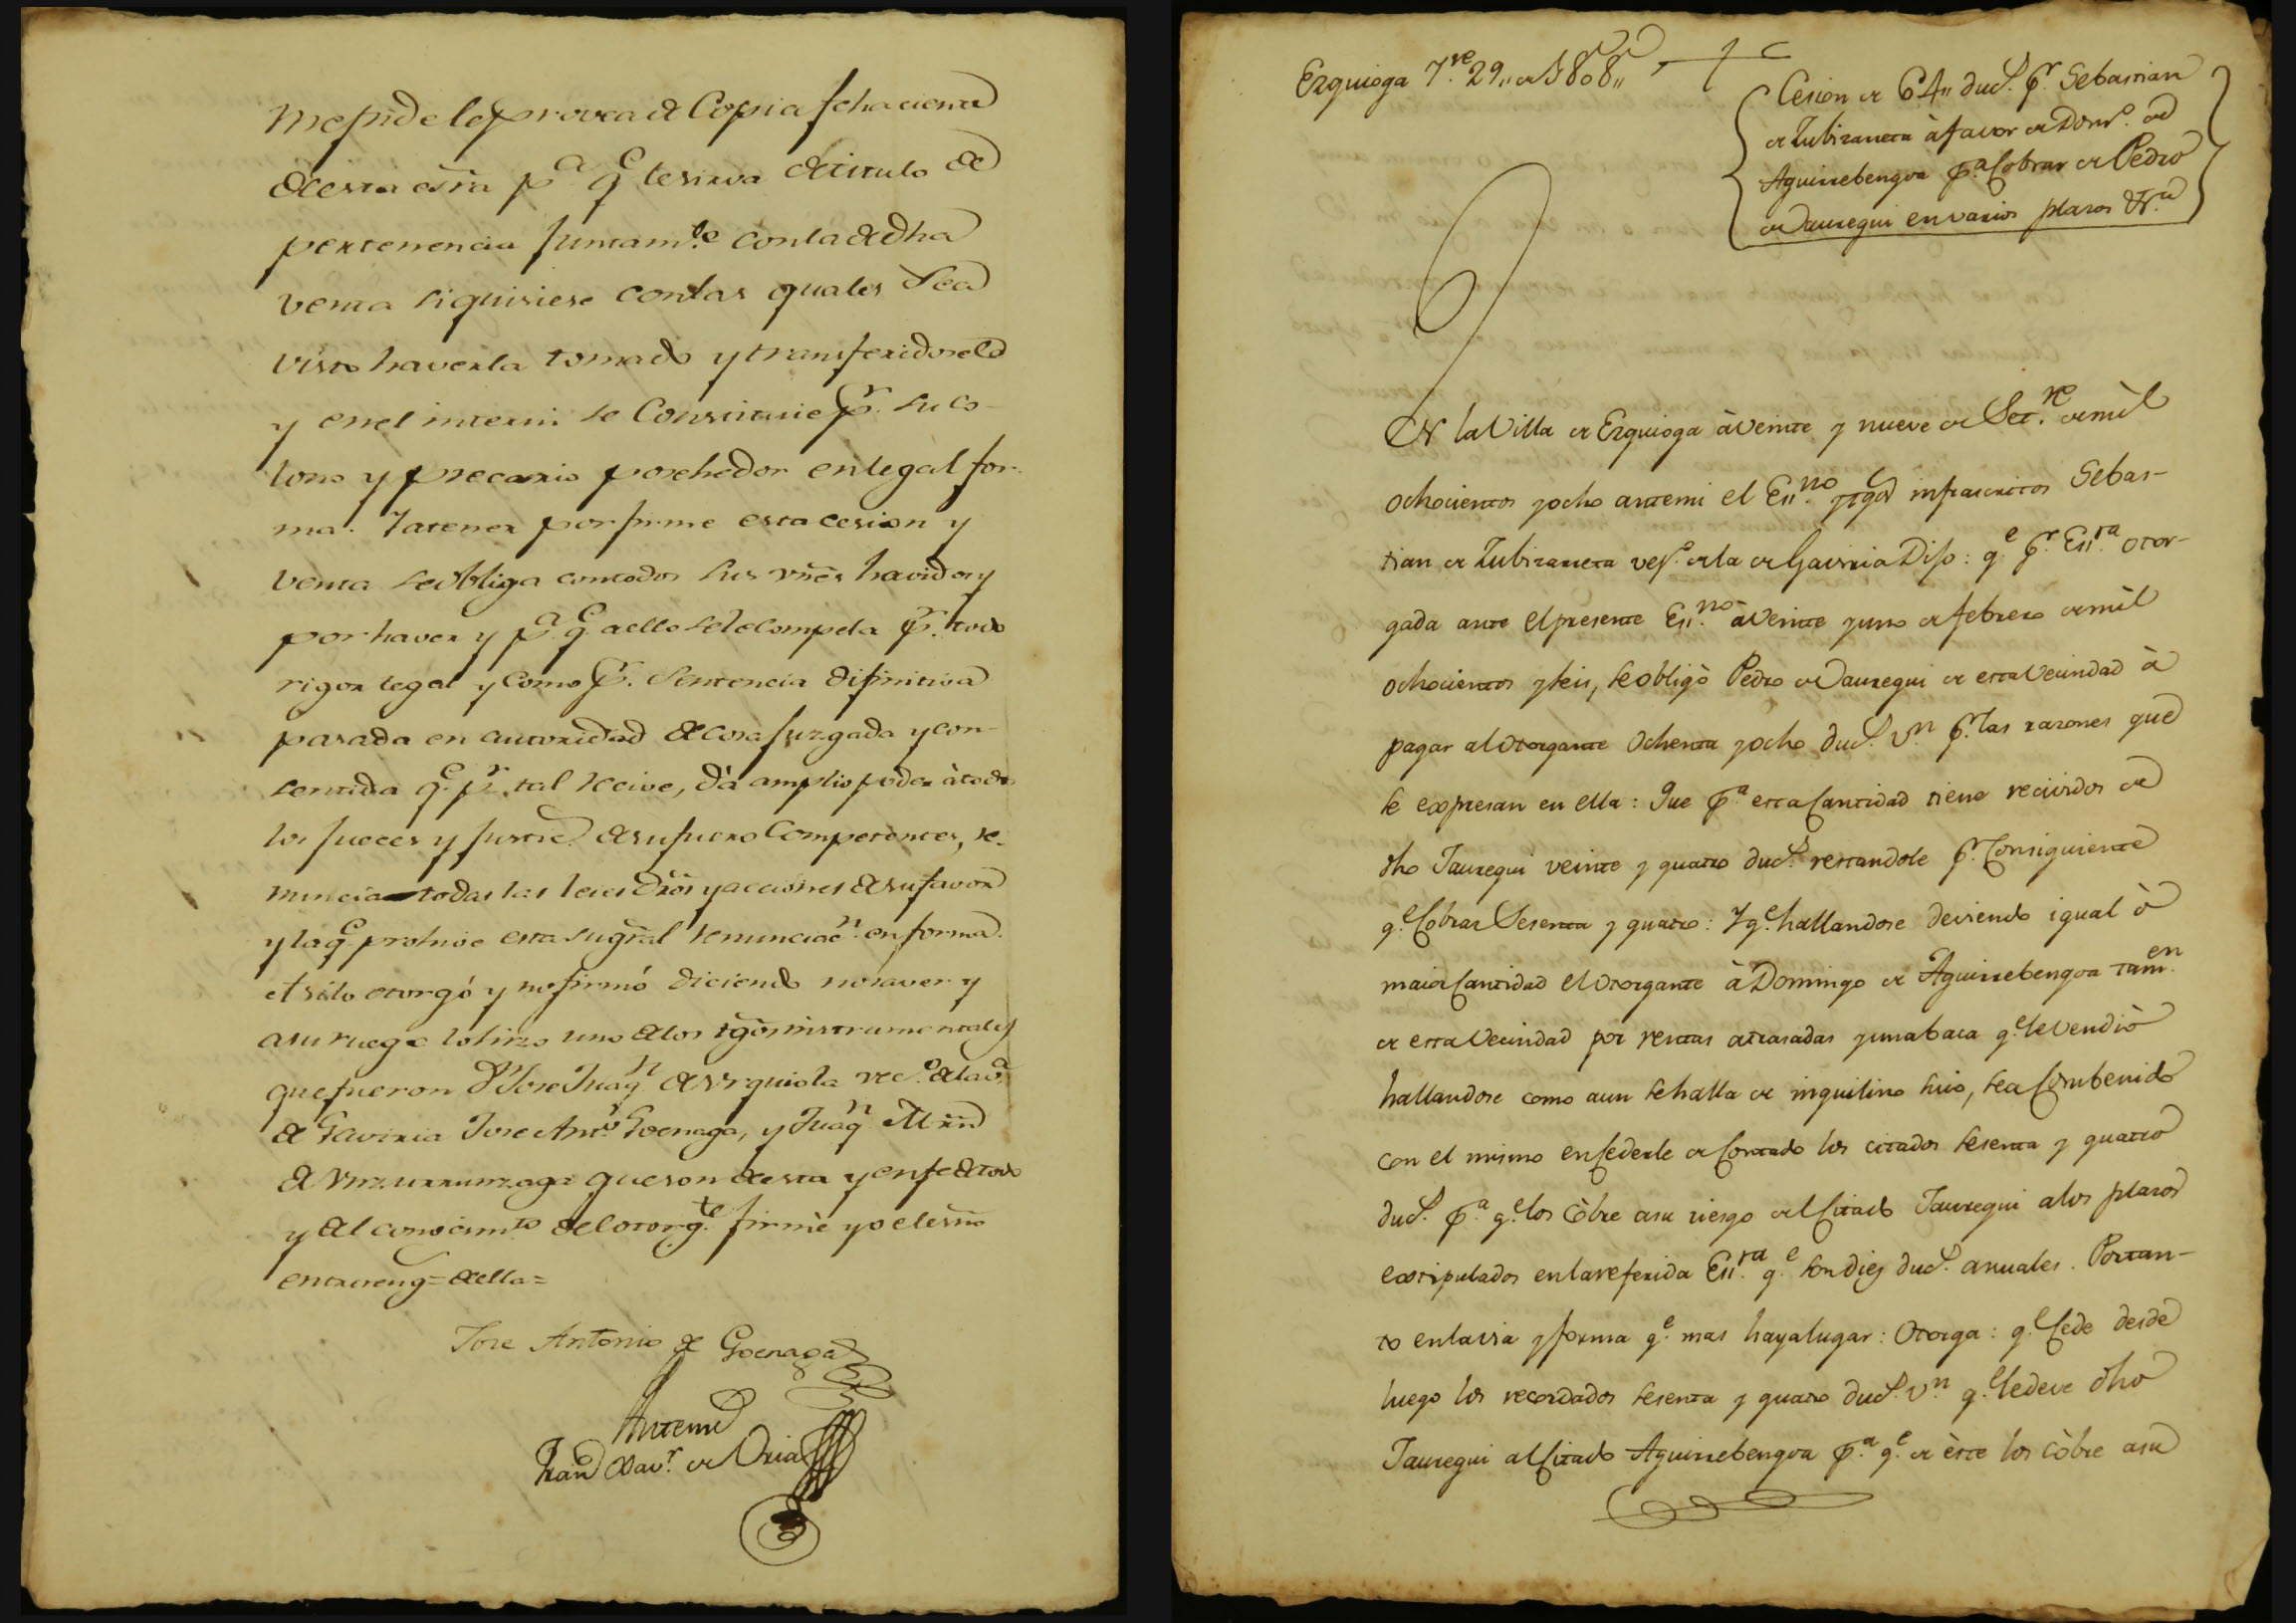 me pide le provea de Copia fehaciente
de esta esrã pª q̃ le sirva de titulo de
pertenencia juntam.te con la de dha
venta si quisiese con las quales sea
visto haverla tomado y transferidosele
y en el interin se Constituie pr. su co-
lono y precario posehedor en legal for-
ma. Y a tener por firme esta cesion y
venta se obliga con todos sus vnẽs havidos y
por haver y pª q̃ a ello se le compela pr. todo
rigor legal y como pr. Sentencia difinitiva
pasada en autoridad de cosa juzgada y con-
sentida q̃. pr. tal recive, dá amplio poder à todos
los jueces y justic.s de su fuero Competentes, re-
nuncia todas las leies dr̃os y acciones de su favor
y la q̃. prohive esta su gr̃al renunciac.n en forma.
Asi lo otorgó y no firmó diciendo no saver y
a su ruego lo hizo uno de los tg̃os instrumentales
que fueron Dn Jose Juaqn de Urquiola vec.º de la v.ª
de Gaviria Jose Ant.º Goenaga, y Juaqn Mrñ
de Unzurrunzaga que son de esta y en fe de todo
y del conocim.to del otorg.te firmè yo el esnõ
entrereng.= de ella=
Jose Antonio de Goenaga
Antemi
Fran.co Xav.r de Oria
Ezquioga 7.re 29,, de 1808,,
Cesion de 64,, duc.s pr. Sebastian
de Zubizarreta à favor de Dom.º de
Aguirrebengoa pª Cobrar de Pedro
de Jauregui en varios plazos &.ª
EN la Villa de Ezquioga à veinte y nueve de Set.re de mil
ochocientos y ocho ante mi el Es.no y tgos infrascritos Sebas-
tian de Zubizarreta ves.º de la de Gaviria Dijo: q.e pr. Es.ra otor-
gada ante el presente Es.no à veinte y uno de febrero de mil
ochocientos y seis, se obligò Pedro de Jauregui de esta Vecindad à
pagar al Otorgante Ochenta y ocho duc.s v.n pr. las razones que
se expresan en ella: Que pª esta Cantidad tiene recividos de
dho Jauregui veinte y quatro duc.s restandole pr. Consiguiente
q.e Cobrar Sesenta y quatro: Y q.e hallandose deviendo igual ò
maior Cantidad el Otorgante à Domingo de Aguirrebengoa tam.en
de esta Vecindad por rentas atrasadas y una baca q.e le vendiò
hallandose como aun se halla de inquilino suio, se a Combenido
con el mismo en Cederle de Contado los citados sesenta y quatro
duc.s pª q.e los còbre a su riesgo del Citado Jauregui a los plazos
extipulados en la referida Es.ra q.e son diez duc.s anuales. Por tan-
to en la via y forma q.e mas haya lugar: Otorga: q.e Cede desde
luego los recordados sesenta y quatro duc.s v.n q.e le deve dho
Jauregui al Citado Aguirrebengoa pª q.e de èste los còbre a su